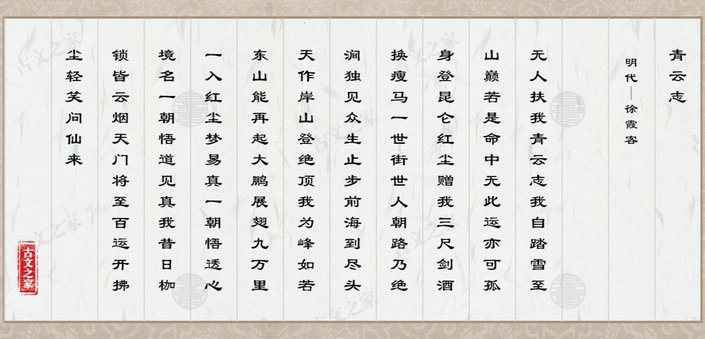 青云志
明代——徐霞客
无人扶我青云志我自踏雪至
山巅若是命中无此运亦可孤
身登昆仑红尘赠我三尺剑酒
换瘦马一世街世人朝路乃绝
涧独见众生止步前海到尽头
天作岸山登绝顶我为峰如若
东山能再起大鹏展翅九万里
一入红尘梦易真一朝悟透心
境名一朝悟道见真我昔日枷
锁皆云烟天门将至百运开拂
尘轻笑问仙来
古文之家